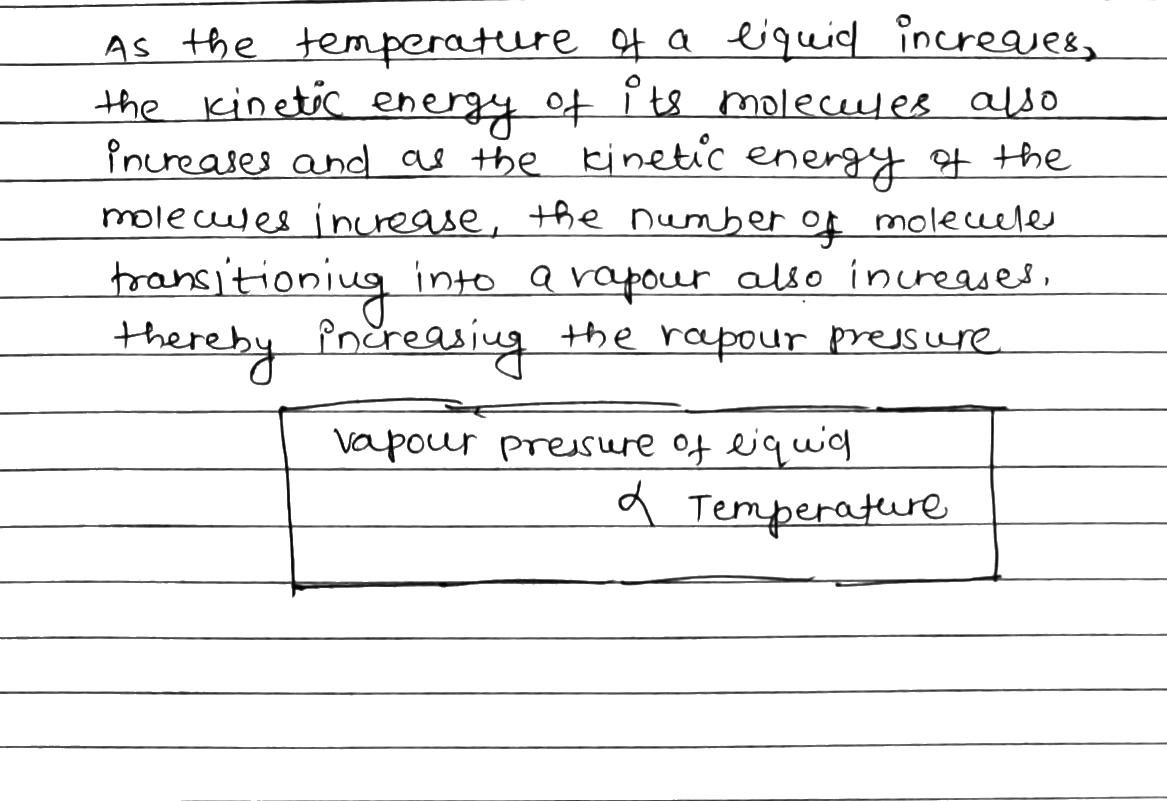 As the temperature of a liquid increases,
the kinetic energy of its molecules also
increases and as the kinetic energy of the
molecules increase, the number of molecules
transitioning into a vapour also increases.
thereby increasing the vapour pressure
Vapour pressure of liquid
∝ Temperature